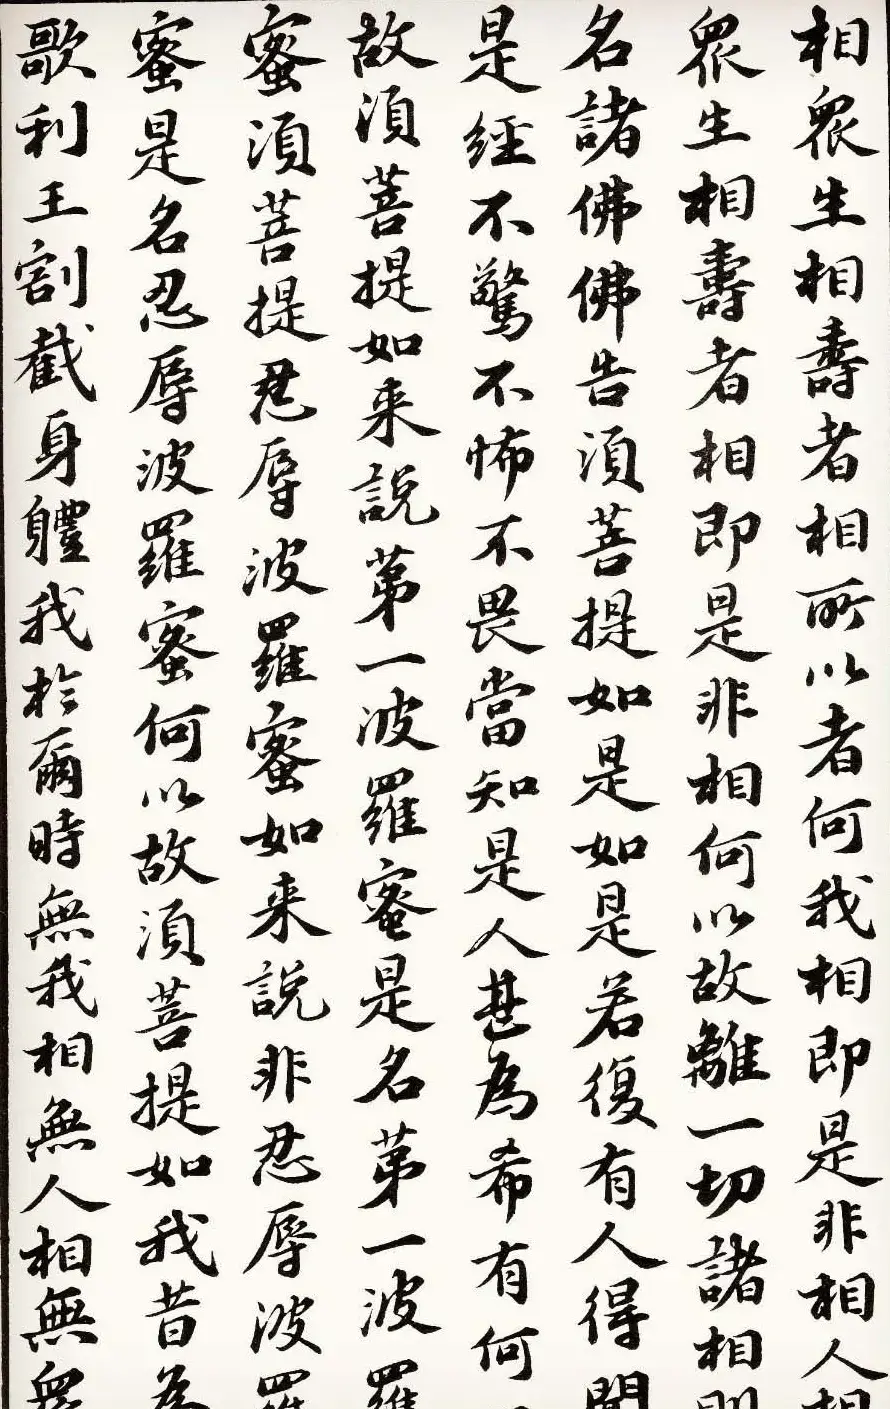 相眾生相壽者相所以者何我相即是非相人相
眾生相壽者相即是非相何以故離一切諸相則
名諸佛佛告須菩提如是如是若復有人得聞
是經不驚不怖不畏當知是人甚為希有何
故須菩提如来說第一波羅蜜是名第一波羅
蜜須菩提忍辱波羅蜜如来說非忍辱波羅
蜜是名忍辱波羅蜜何以故須菩提如我昔為
歌利王割截身體我於爾時無我相無人相無眾